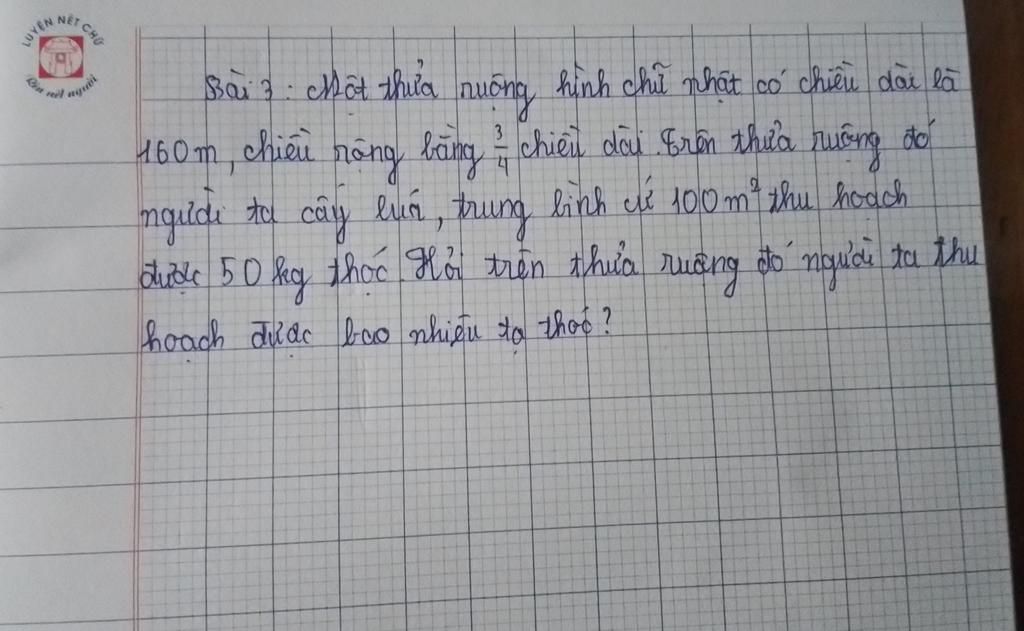 LUYỆN NÉT CHỮ
Rèn nết người
Bài 3: Một thửa ruộng hình chữ nhật có chiều dài là
160m, chiều rộng bằng 3/4 chiều dài. Trên thửa ruộng đó
người ta cấy lúa, trung bình cứ 100m² thu hoạch
được 50 kg thóc. Hỏi trên thửa ruộng đó người ta thu
hoạch được bao nhiêu tạ thóc?